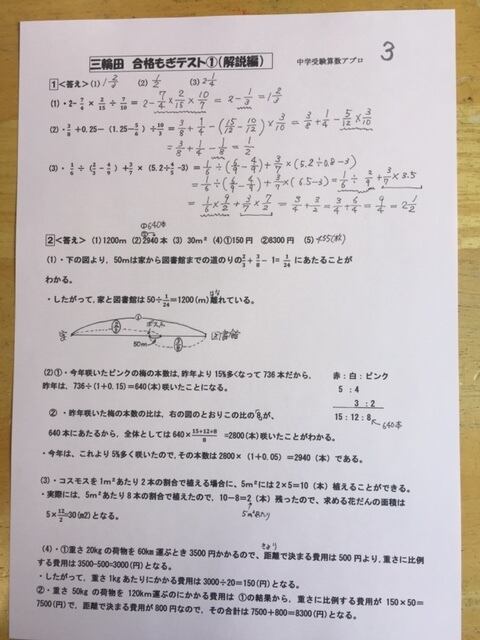 三輪田 合格もぎテスト①(解説編)
中学受験算数アプロ
3
1 <答え> (1) 1 2/3 (2) 1/2 (3) 2 1/4
(1)・2-7/4 × 2/15 ÷ 7/10 = 2 - 7/4 × 2/15 × 10/7 = 2 - 1/3 = 1 2/3
(2)・3/8 + 0.25-(1.25-5/6) ÷ 10/3 = 3/8 + 1/4 - (15/12 - 10/12) × 3/10 = 3/8 + 1/4 - 5/12 × 3/10
= 3/8 + 1/4 - 1/8 = 1/2
(3)・1/6 ÷ (2/3-4/9) +3/7 × (5.2÷4/5-3) = 1/6 ÷ (6/9 - 4/9) + 3/7 × (5.2÷0.8-3)
= 1/6 ÷ (6/9 - 4/9) + 3/7 × (6.5-3) = 1/6 ÷ 2/9 + 3/7 × 3.5
= 1/6 × 9/2 + 3/7 × 7/2 = 3/4 + 3/2 = 3/4 + 6/4 = 9/4 = 2 1/2
①640本
2 <答え> (1)1200m (2)②2940本 (3) 30m² (4)①150円 ②8300円 (5)
(1)・下の図より、50mは家から図書館までの道のりの2/3+3/8-1=1/24 にあたることが
わかる。
・したがって、家と図書館は 50÷1/24=1200(m)離れている。
はな
① ポスト
家 図書館
50m
(2)①・今年咲いたピンクの梅の本数は、昨年より 15%多くなって 736 本だから、
昨年は、736÷(1+0.15)=640(本)咲いたことになる。
赤:白:ピンク
5 :4
3 :2
15:12:8
640本
②・昨年咲いた梅の本数の比は、右の図のとおりこの比の8が、
640本にあたるから、全体としては 640×15+12+8/8 =2800(本)咲いたことがわかる。
・今年は、これより5%多く咲いたので、その本数は 2800×(1+0.05)=2940(本)である。
(3)・コスモスを1m²あたり2本の割合で植える場合に、5m²には2×5=10(本)植えることができる。
・実際には、5m²あたり8本の割合で植えたので、10-8=2(本)残ったので、求める花だんの面積は
5×12/2=30(m2)となる。
5m²あたり
きょり
(4)・①重さ20kgの荷物を60km運ぶとき3500円かかるので、距離で決まる費用は500円より、重さに比例
する費用は3500-500=3000(円)となる。
・したがって、重さ1kgあたりにかかる費用は3000÷20=150(円)となる。
②・重さ50kgの荷物を120km運ぶのにかかる費用は①の結果から、重さに比例する費用が150×50=
7500(円)で、距離で決まる費用が800円なので、その合計は7500+800=8300(円)となる。